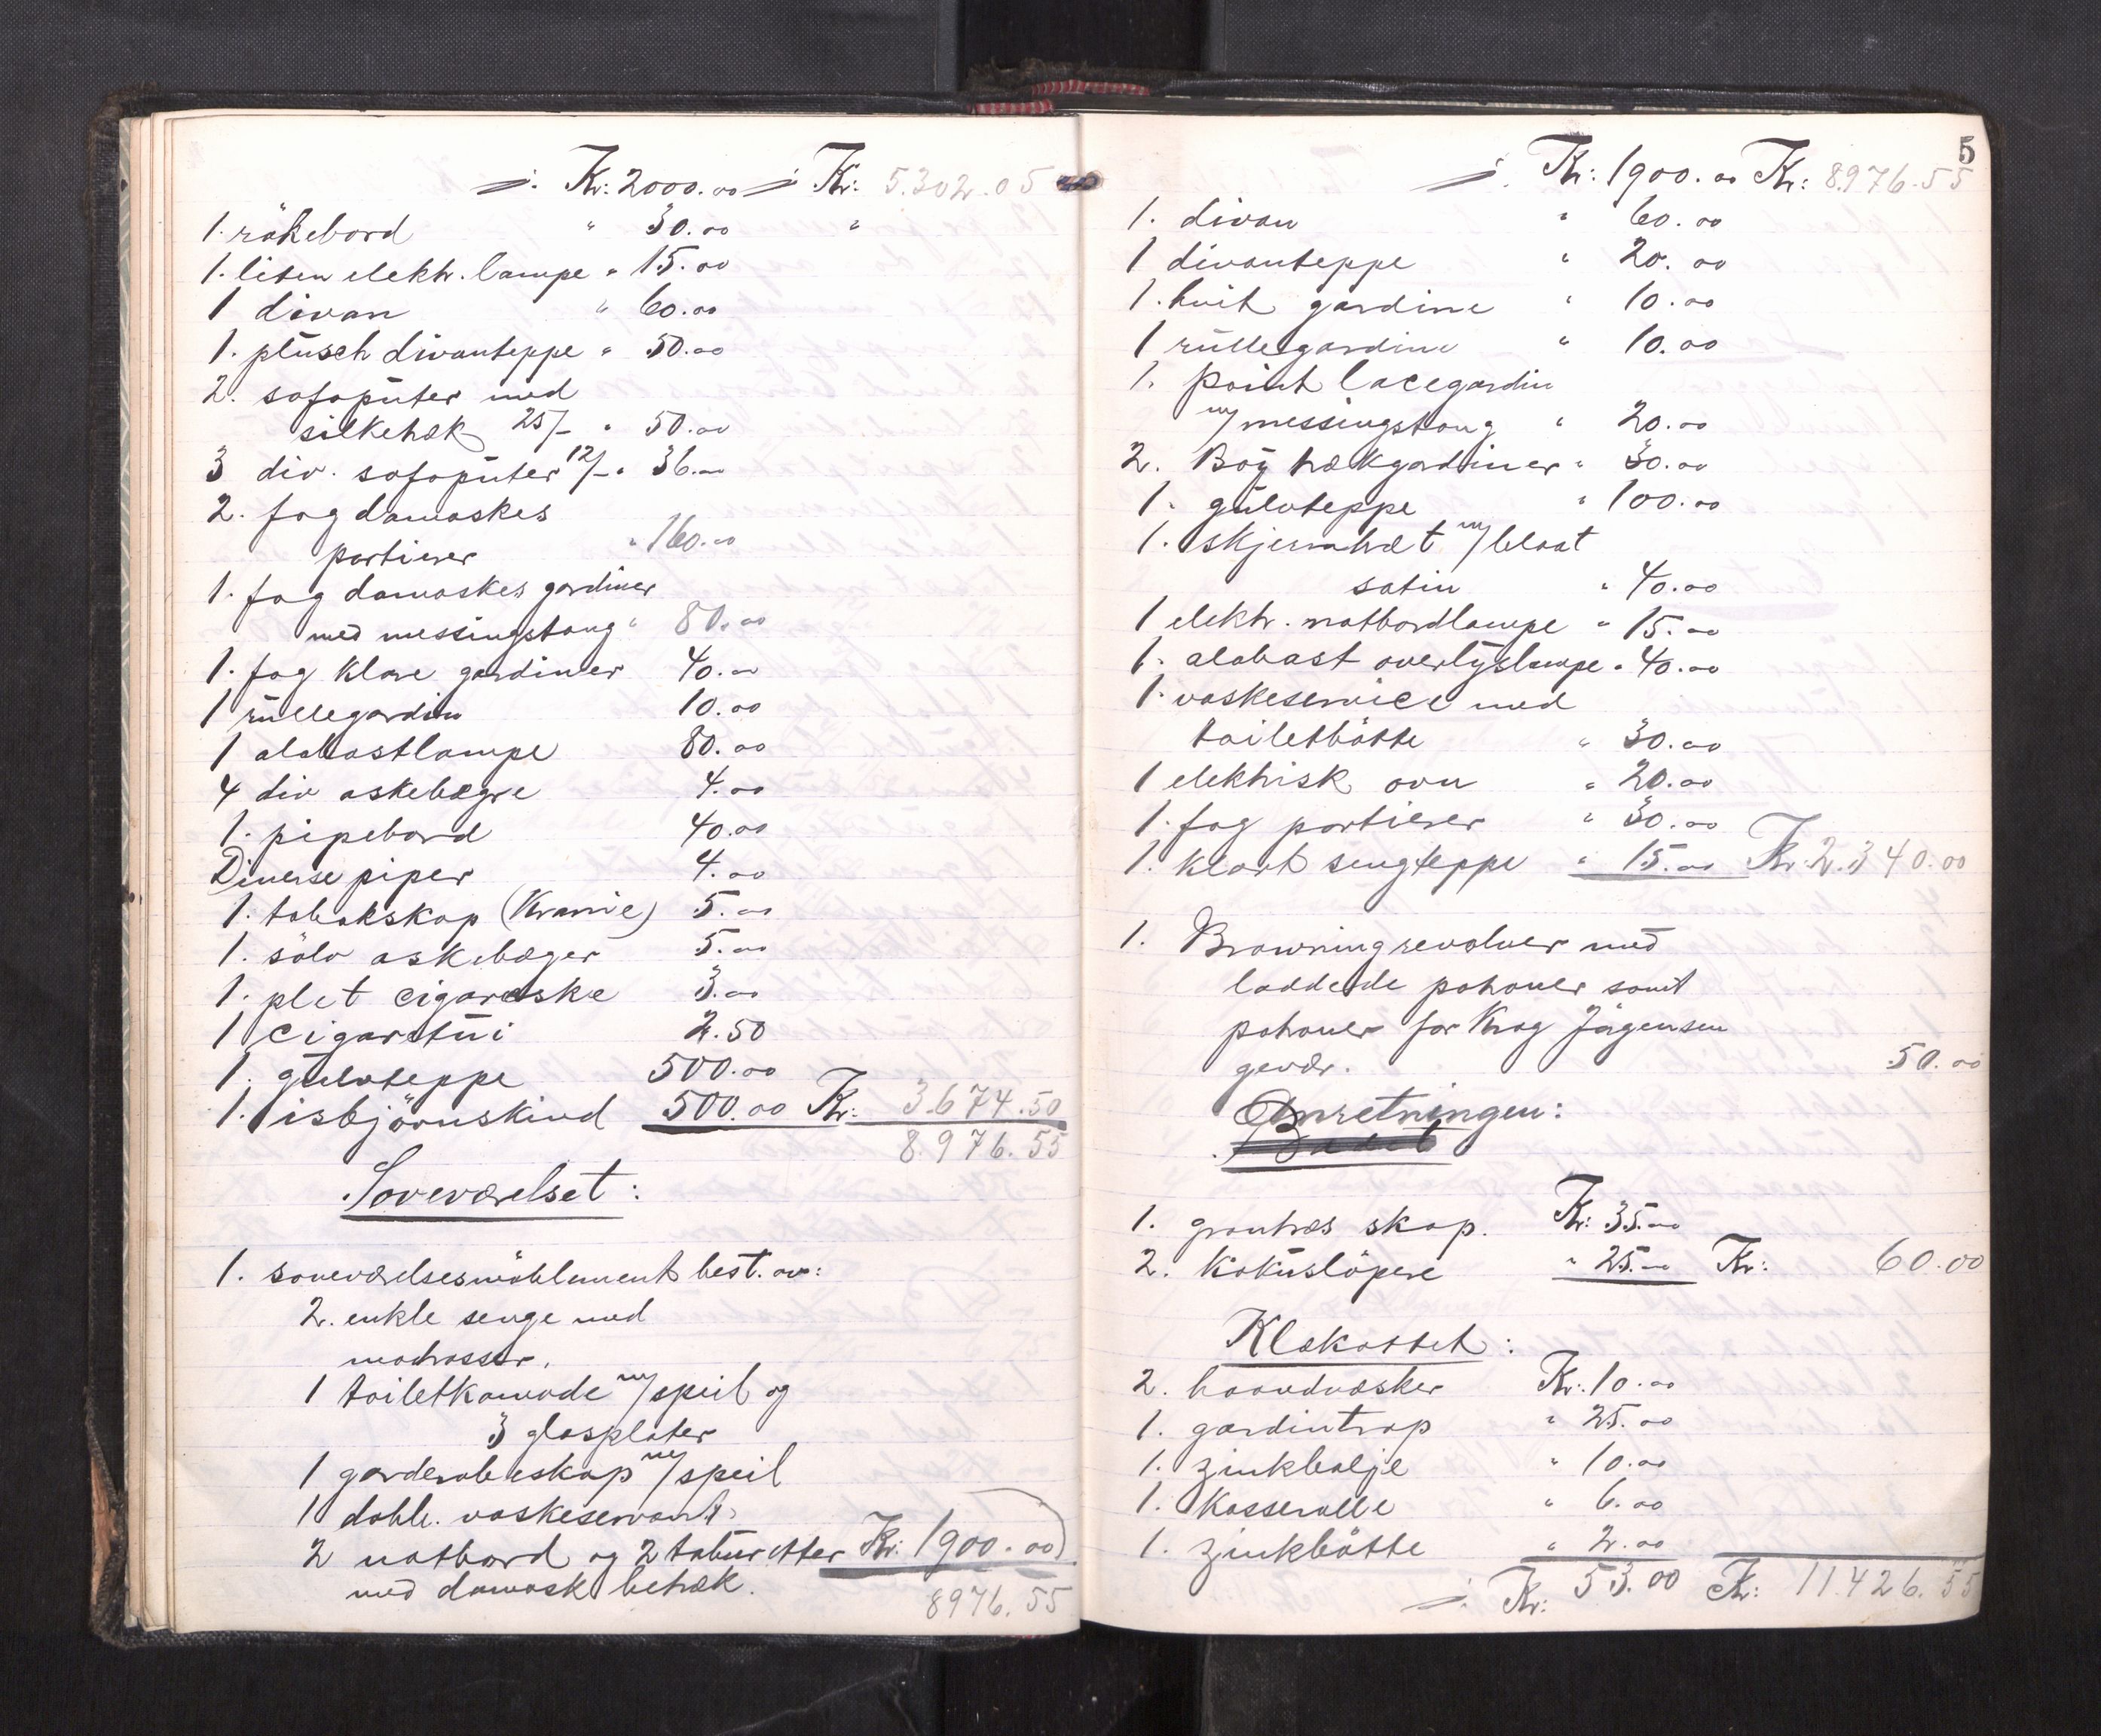 ./. Kr: 2000.00 ./. Kr: 5.302.05
1. rökebord " 30.00 "
1. liten elektr. lampe " 15.00
1 divan " 60.00
1. plüsch divanteppe " 50.00
2. sofapüter med
silketræk 25/- " 50.00
3 div. sofapüter 12/- " 36.00
2. fag damaskes
portierer " 160.00
1. fag damaskes gardiner
med messingstang " 80.00
1. fag klare gardiner 40.00
1 rüllegardin 10.00
1 alabastlampe 80.00
4 div askebægre 4.00
1. pipebord 40.00
Diverse piper 4.00
1. tobakskop (Kranie) 5.00
1. sölv askebæger 5.00
1. plet cigaræske 3.00
1 cigaretüi 2.50
1. gülvteppe 500.00
1. isbjörnskind 500.00 Kr: 3.674.50
8.976.55
Soveværelset:
1. soveværelsesmöblement best. av:
2. enkle senge med
madrasser.
1 toiletkomode m/speil og
3 glasplater
1 garderobeskap m/speil
1 dobb. vaskeservant.
2 natbord og 2 taburetter Kr: 1900.00
med damask betræk.
8976.55
5
./. Kr: 1900.00 Kr: 8.976.55
1. divan " 60.00
1 divanteppe " 20.00
1. hvit gardine " 10.00
1 rüllegardine " 10.00
1. point lacegardin
m/messingstang " 20.00
2. Böy trækgardiner " 30.00
1. gülvteppe " 100.00
1. skjermbræt m/blaat
satin " 40.00
1 elektr. natbordlampe " 15.00
1. alabast overlyslampe " 40.00
1. vaskeservice med
toiletbötte " 30.00
1 elektrisk ovn " 20.00
1. fag portierer " 30.00
1. klart sengteppe " 15.00 Kr. 2.340.00
1. Browningrevolver med
laddede patroner samt
patroner for Krag Jörgensen
gevær. 50.00
Anretningen:
1. grantræs skap. Kr: 35.00
2. kokuslöpere " 25.00 Kr: 60.00
Klækottet:
2. haandvæsker Kr: 10.00
1. gardintrap " 25.00
1. zinkbalje " 10.00
1. kasserolle " 6.00
1. zinkbötte " 2.00
./. Kr: 53.00 Kr: 11.426.55